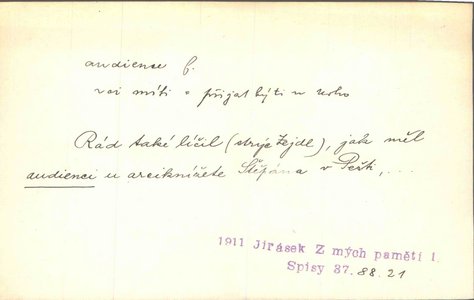 audience f.
míti a přijat býti u koho
Rád také líčil (strýc Zejdl), jak měl
audienci u arciknížete Štěpána v Pešti, ...
1911 Jirásek Z mých pamětí 1.
Spisy 37. 88. 21